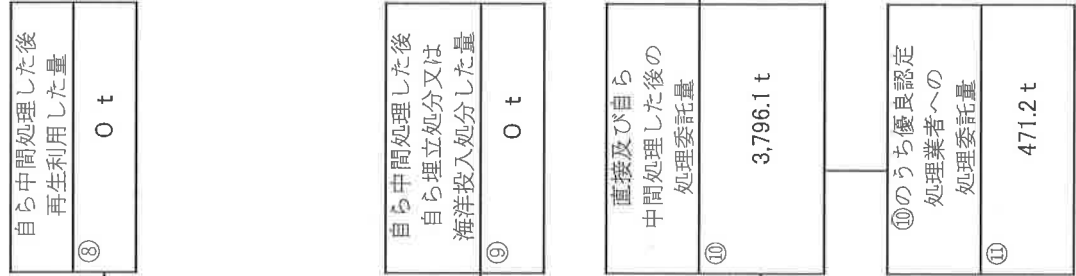 自ら中間処理した後
再生利用した量
⑧
0 t
自ら中間処理した後
自ら埋立処分又は
海洋投入処分した量
⑨
0 t
直接及び自ら
中間処理した後の
処理委託量
⑩
3,796.1 t
⑩のうち優良認定
処理業者への
処理委託量
⑪
471.2 t